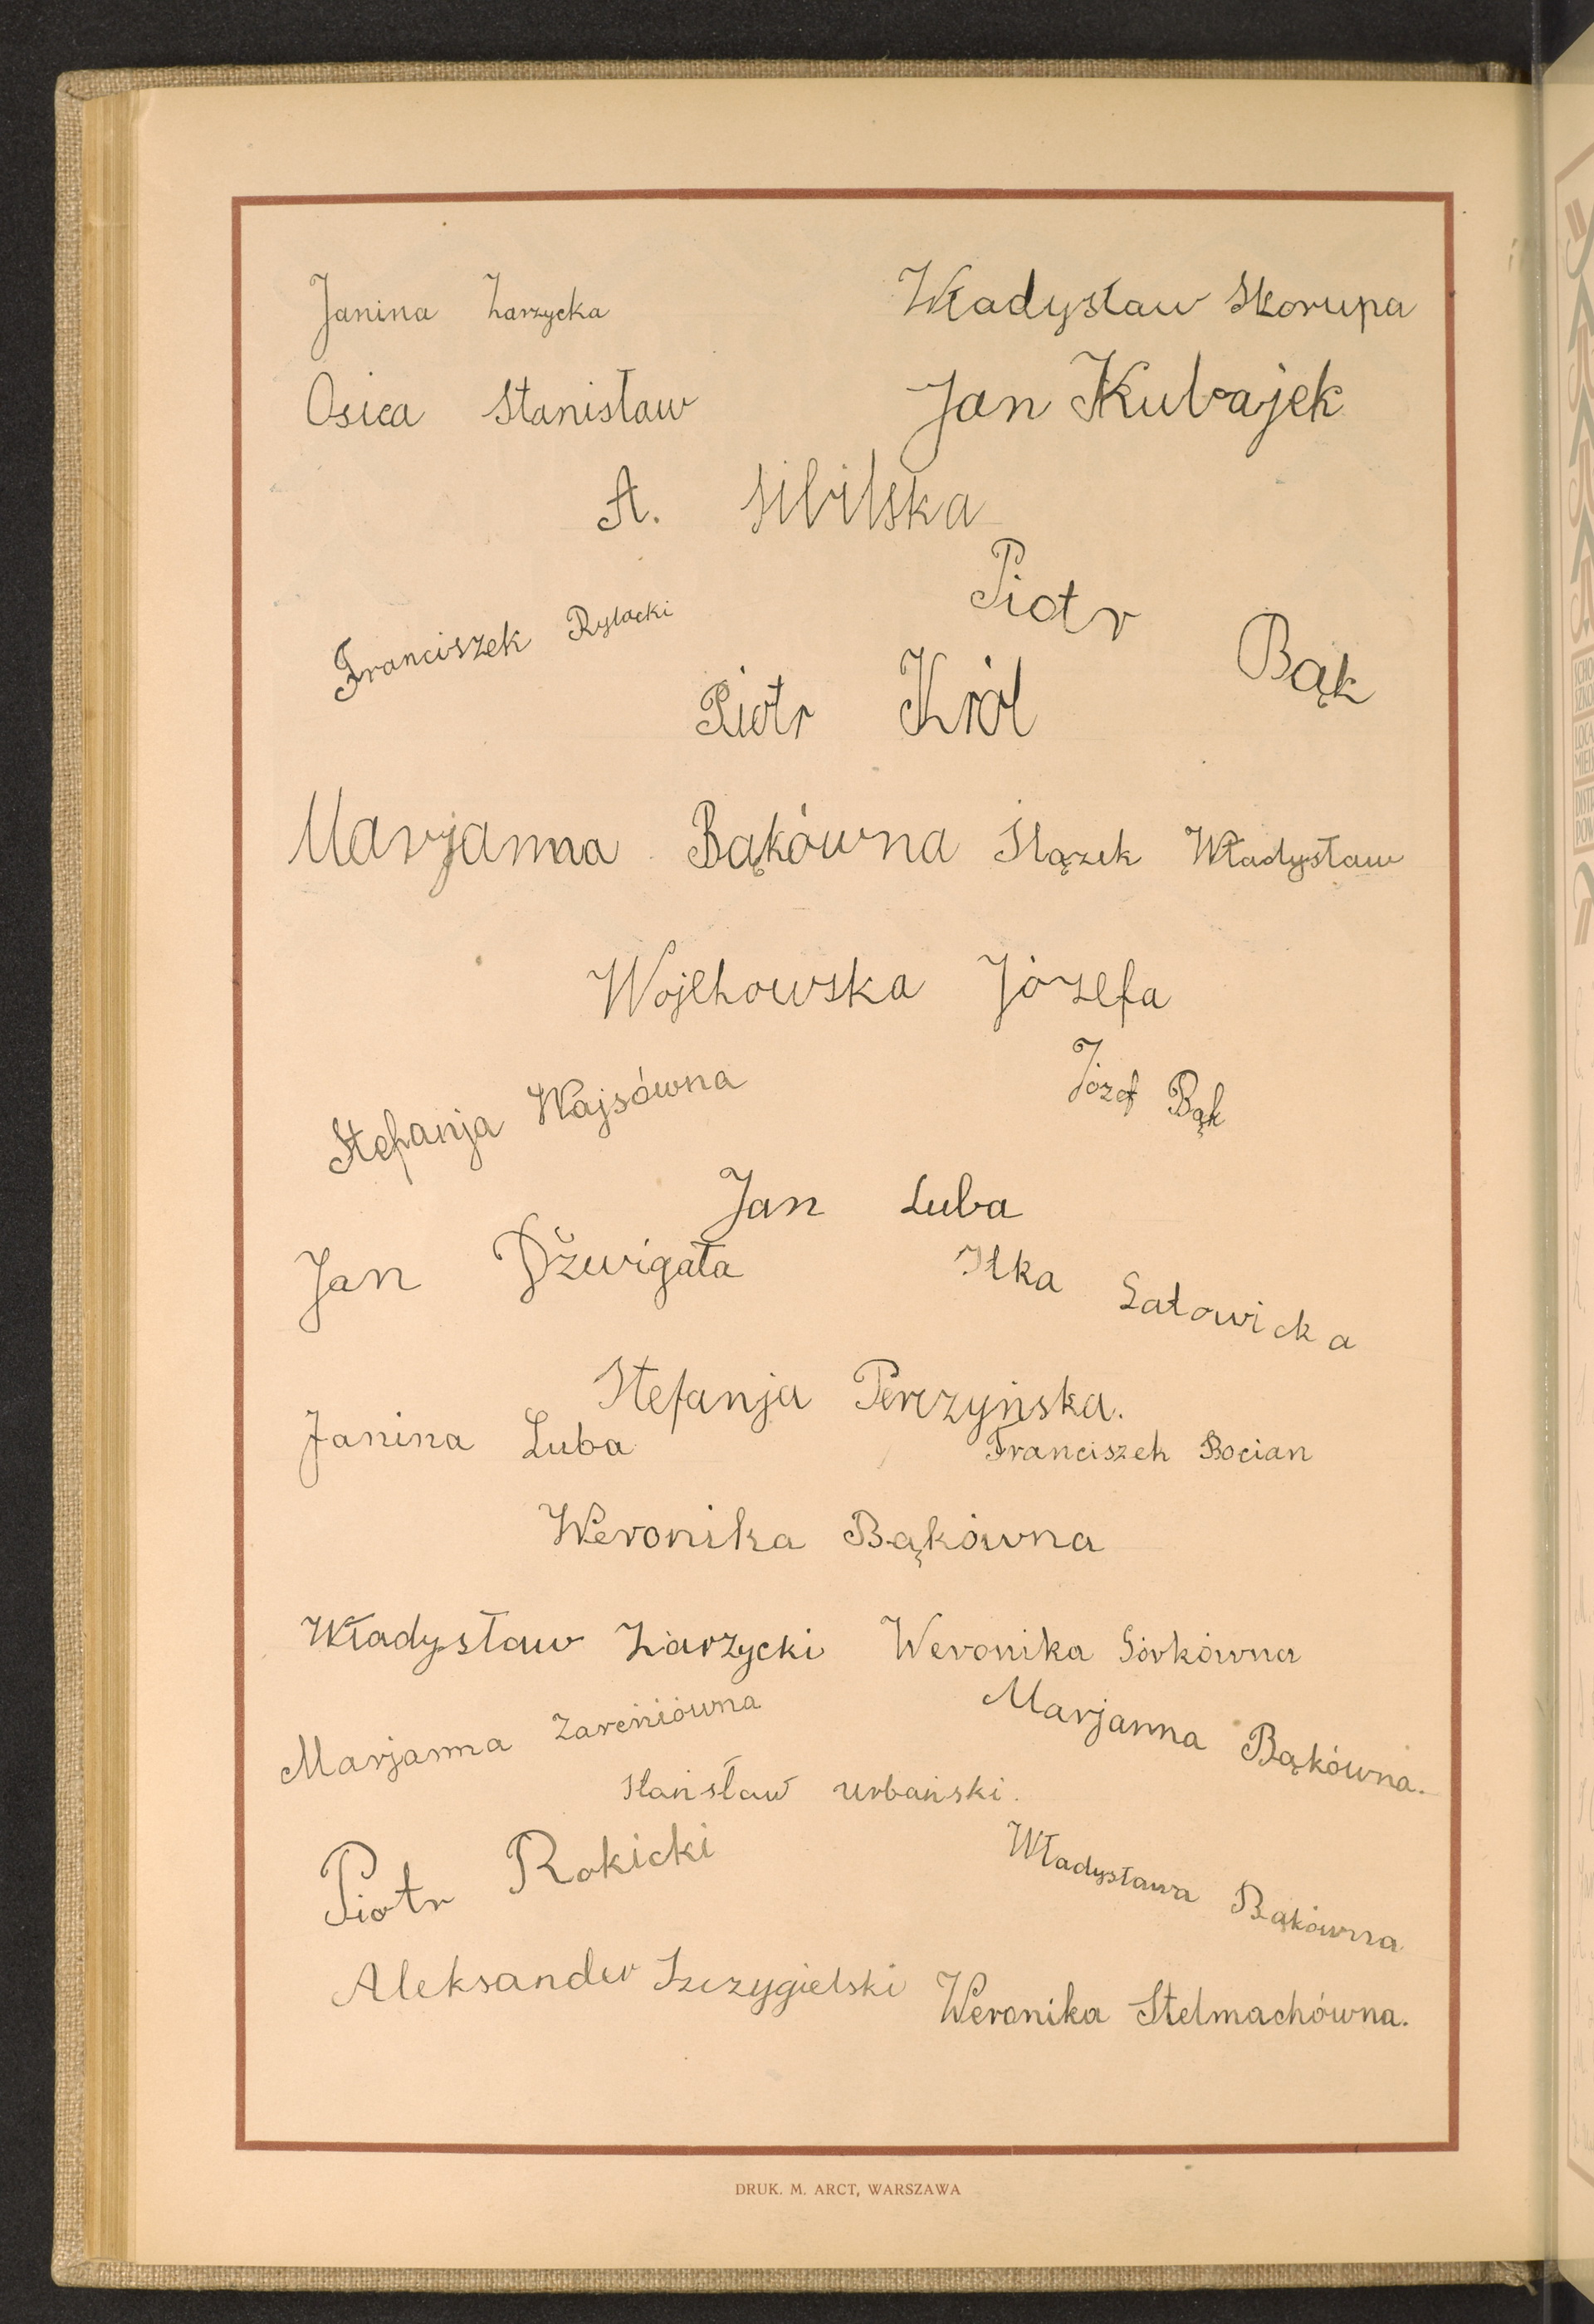 Janina Zarzycka Władysław Skorupa
Osica Stanisław Jan Kubajek
A. Sibilska
Piotr Bąk
Franciszek Rylacki
Piotr Król
Marjanna Bąkówna Ślązek Władysław
Wojehowska Józefa
Stefanja Wajsówna Józef Bąk
Jan Luba
Jan Dźwigała Itka Satowicka
Stefanja Perczyńska.
Janina Luba Franciszek Bocian
Weronika Bąkówna
Władysław Zarzycki Weronika Górkówna
Marjanna Zareniówna Marjanna Bąkówna.
Stanisław Urbański.
Piotr Rokicki Władysława Bąkówna
Aleksander Szczygielski Weronika Stelmachówna.
DRUK. M. ARCT, WARSZAWA